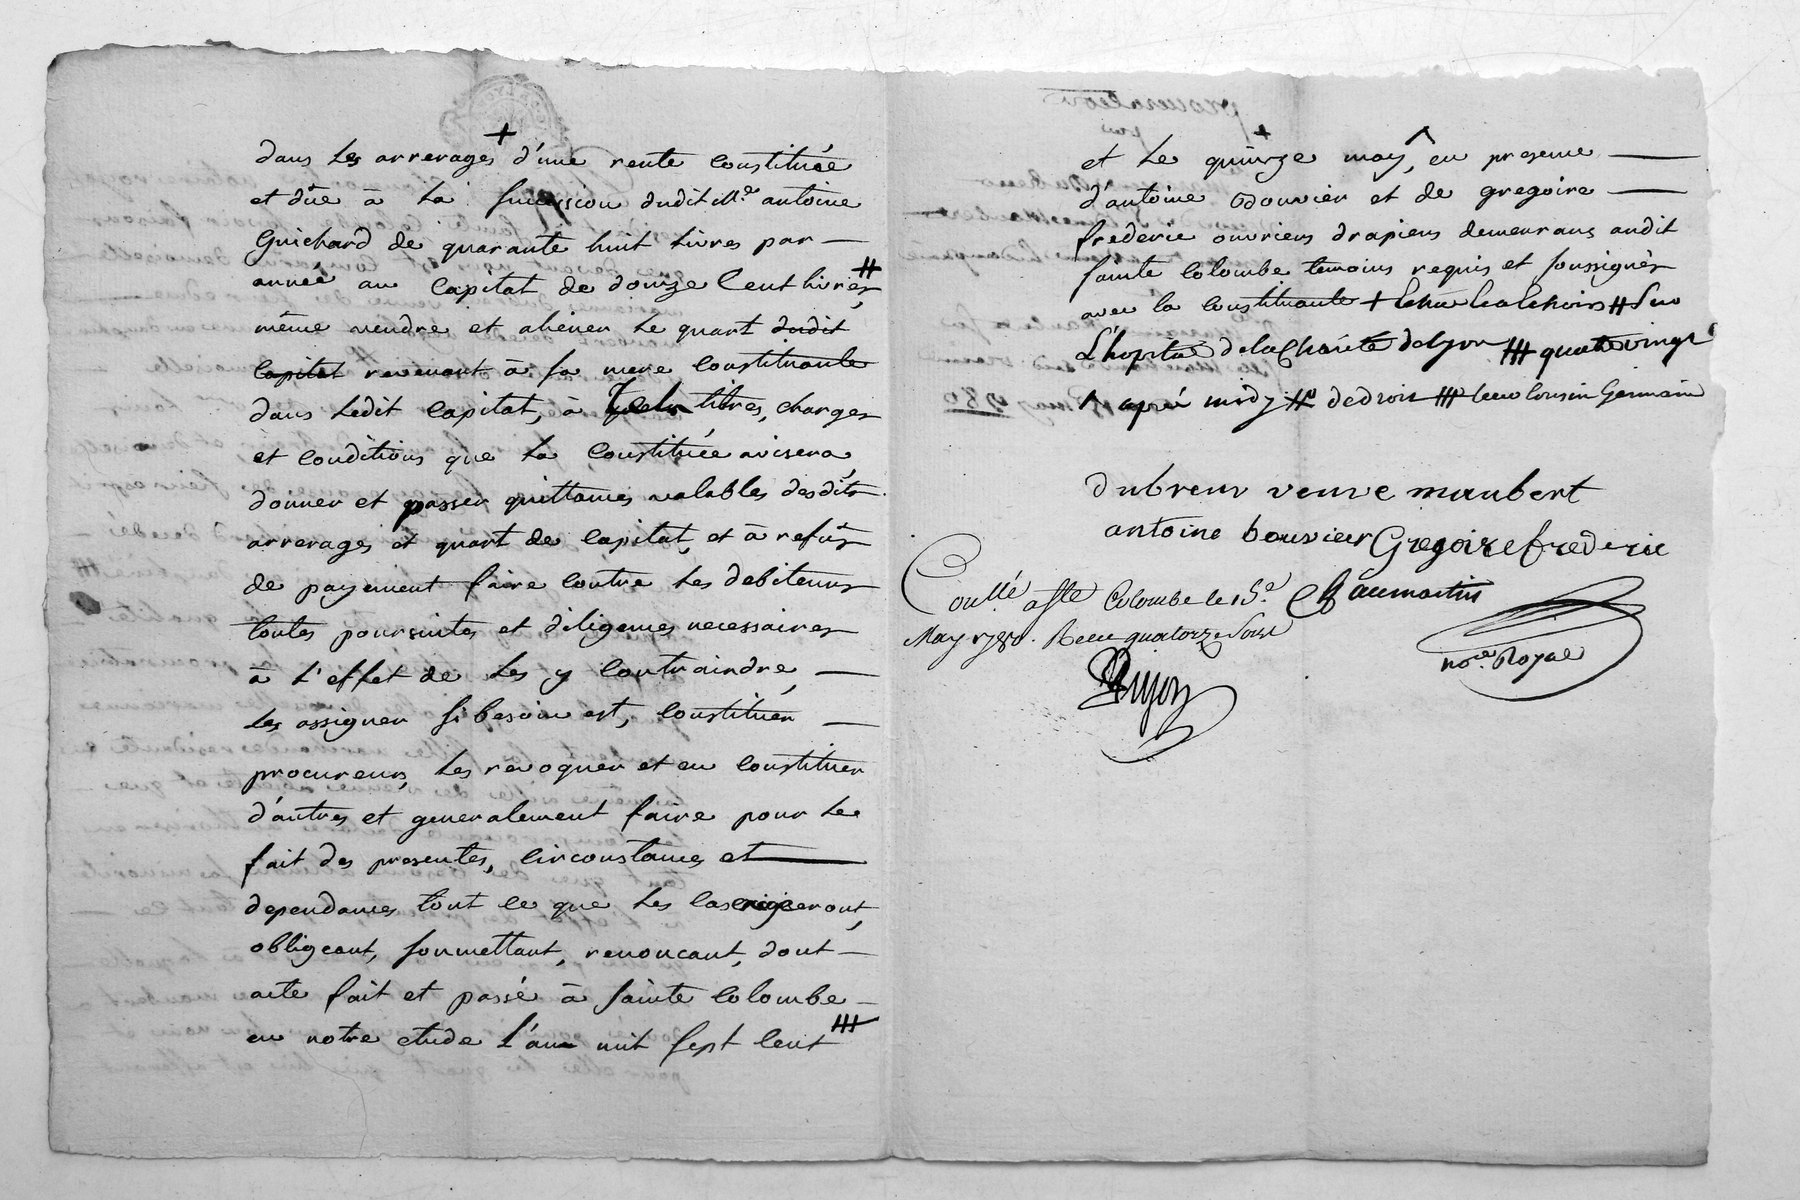 dans les arrerages + d'une rente constituée
et düe à la succession dudit Me antoine
Guichard de quarante huit livres par —
année au capital de douze cent livres, #
même vendre et aliener le quart dudit
capital revenant à sa mere constituante
dans ledit capital, à tels titres, charges
et conditions que la constituée avisera
donner et passer quittances valables desdits
arrerages et quart de capital, et à refus
de payement faire contre les debiteurs
toutes poursuites et diligences necessaires
à l'effet de les y contraindre, —
les assigner si besoin est, constituer —
procureurs, les revoquer et en constituer
d'autres et generalement faire pour le
fait des presentes, circonstances et —
dependances tout ce que les cas exigeront,
obligeant, soumettant, renoncant, dont —
acte fait et passé à sainte Colombe —
en notre etude l'an mil sept cent #
et le + quinze may, ^ en presence —
d'antoine Bouvier et de gregoire —
frederic ouvriers drapiers demeurans audit
sainte Colombe temoins requis et soussignés
avec la constituante + # Sur
L'hopital de la Charité de Lyon # quatrevingt
^ aprés midy # de droit # cousin Germain
dubreur veuve maubert
antoine bouvier Gregoire frederic
Conllé a Ste Colombe le 15e
May 1780. Receu quatorze sous
nore. Royal